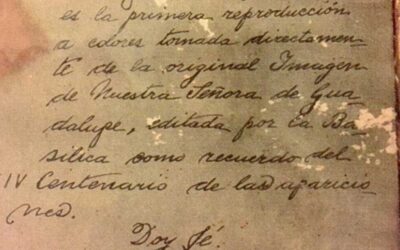 es la primera reproducción
a colores tomada directamen-
te de la original Imagen
de Nuestra Señora de Gua
daluje, editada por la Ba
sílica como recuerdo del
IV Centenario de las aparicio
nes.
Doy fé.